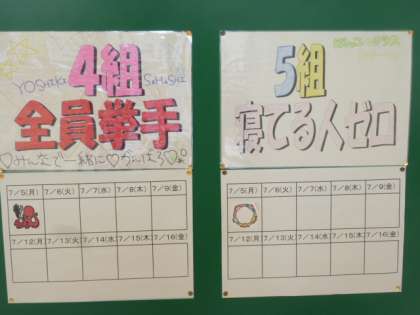 4組
YOSHIKI
全員挙手
♡みんなで一緒に♡がんばろ♡
7/5(月) 7/6(火) 7/7(水) 7/8(木) 7/9(金)
7/12(月) 7/13(火) 7/14(水) 7/15(木) 7/16(金)
5組
寝てる人ゼロ
7/5(月) 7/6(火) 7/7(水) 7/8(木) 7/9(金)
7/12(月) 7/13(火) 7/14(水) 7/15(木) 7/16(金)